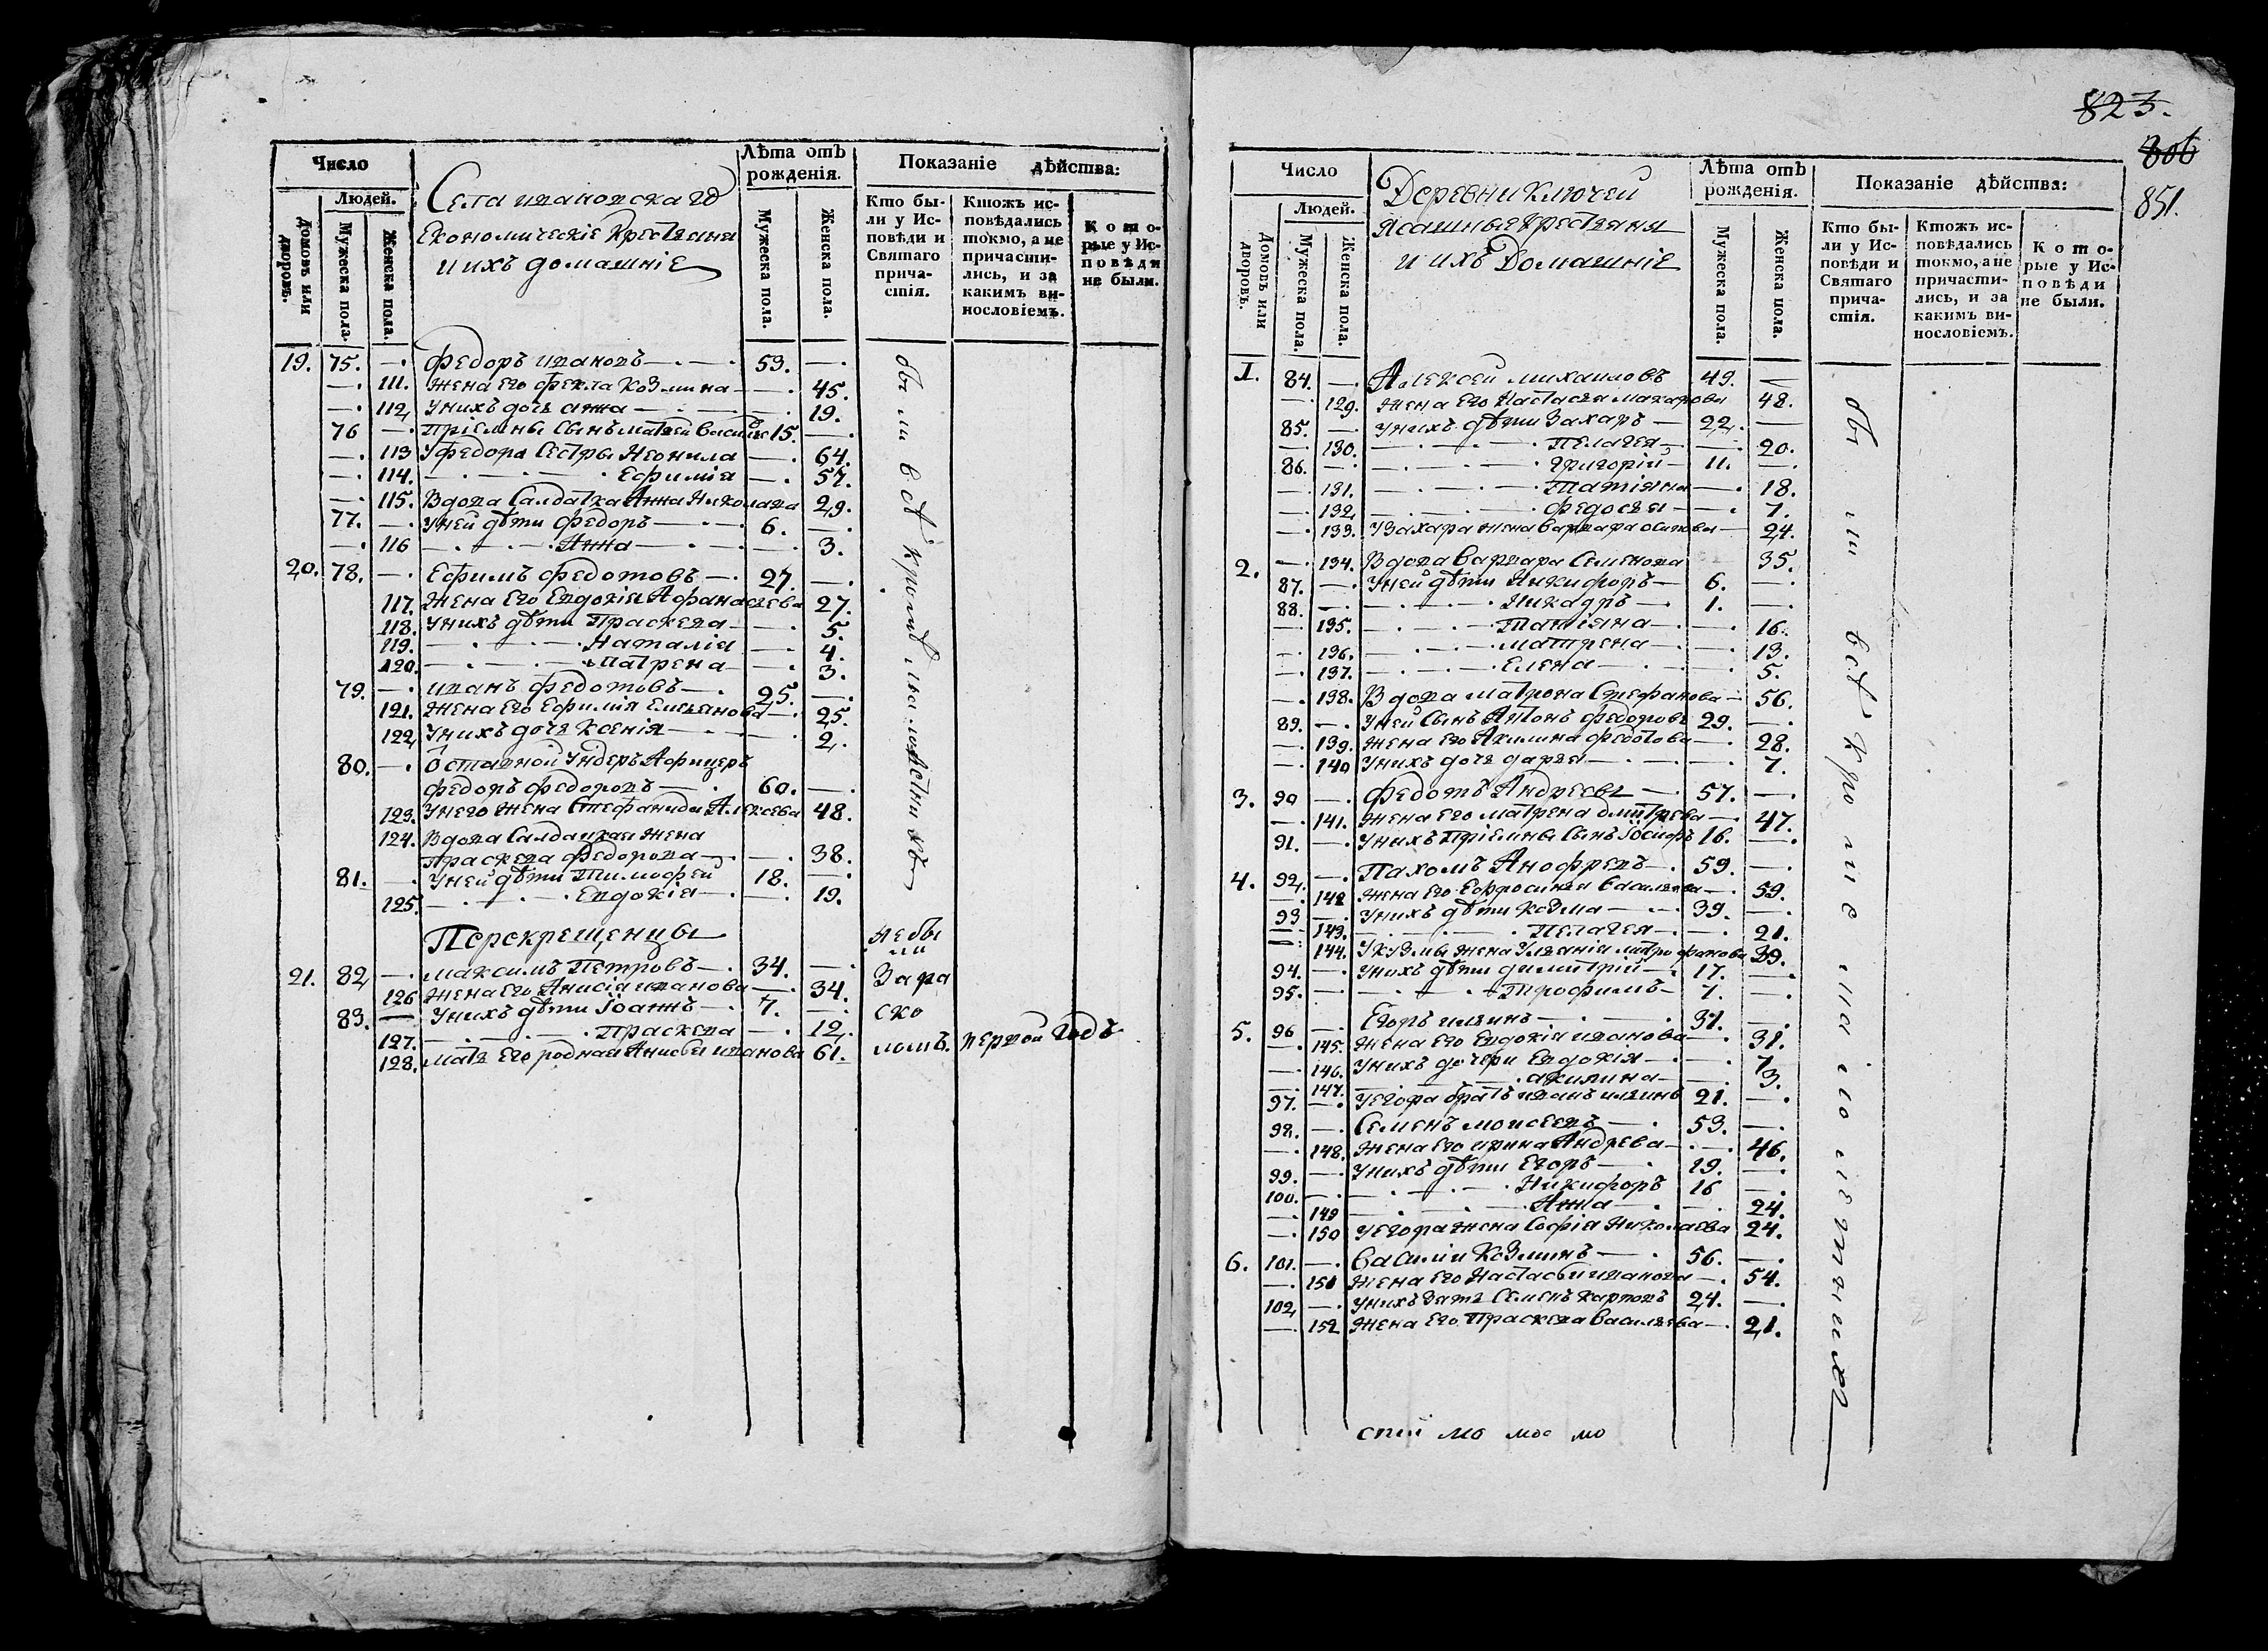 Число
Людей.
Домовъ или дворовъ.
Мужеска пола.
Женска пола.
Села ивановскаго
Економическіе крестьяна
и ихъ домашніе
Лѣта отъ рожденія.
Мужеска пола.
Женска пола.
Показаніе дѣйства:
Кто были у Исповѣди и Святаго причастія.
Ктожъ исповѣдались токмо, а не причастились, и за какимъ винословіемъ.
Которые у Исповѣди не были.
19. 75. —. Федоръ ивановъ 53. —.
—. 111. Жена его Фекла Козмина —. 45.
—. 112. Унихъ дочь анна —. 19.
76 —. Пріемны сынъ матвей василь 15. —.
—. 113 Уфедора сестры Неонила —. 64.
—. 114. Ефимія —. 57.
—. 115. Вдова Салдатка Анна Николава 29.
77. —. Уней дѣти Федоръ 6. —.
—. 116 Анна —. 3.
20. 78. —. Ефимъ Федотовъ 27. —.
117. Жена его Евдокія Афанасьева 27.
118. Унихъ дѣти Праскева —. 5.
119. Наталія —. 4.
120. Матрена —. 3.
79. —. иванъ Федотовъ 25. —.
121. Жена его Ефимія Емельянова —. 25.
122. Унихъ дочь Ксенія —. 2.
80. —. Оставной Ундеръ Афицеръ
Федоръ Федоровъ 60. —.
123. Унего жена Стефанида Алексева 48.
124. Вдова Салдацкая жена
Праскева Федорова —. 38.
81. —. Уней дѣти Тимофей 18. —.
125. Евдокія —. 19.
были всѣ кромѣ малолѣтнихъ
Перекрещенцы
21. 82. —. Максимъ Петровъ 34. —.
126 Жена его Анисія иванова —. 34.
83. — Унихъ дѣти Іоаннъ 7. —.
127. Праскева —. 12.
128. Мать его родная Анисья иванова 61.
Небы
ли
Зара
ско
ломъ. первой годъ
823.
806
851.
Число
Людей.
Домовъ или дворовъ.
Мужеска пола.
Женска пола.
Деревни Ключей
Ясашные крестьяня
и ихъ Домашніе
Лѣта отъ рожденія.
Мужеска пола.
Женска пола.
Показаніе дѣйства:
Кто были у Исповѣди и Святаго причастія.
Ктожъ исповѣдались токмо, а не причастились, и за какимъ винословіемъ.
Которые у Исповѣди не были.
1. 84. —. Алексей михаиловъ 49. —
—. 129. Жена его Настасья макарова 48.
85. —. Унихъ дѣти Захаръ 22. —
—. 130. Пелагея —. 20.
86. —. Григорій 11. —.
—. 131. Татіяна —. 18.
—. 132. Федосья —. 7.
—. 133. Узахара жена варвара осипова 24.
2. —. 134. Вдова варвара Семенова 35.
87. —. Уней дѣти Никифоръ 6. —.
88. —. Никадръ 1. —.
—. 135. Татіяна —. 16.
—. 136. матрена —. 13.
—. 137. Елена —. 5.
—. 138. Вдова матрона Стефанова 56.
89. —. Уней сынъ Антонъ Федоровъ 29. —.
—. 139. Жена его Акилина Федотова —. 28.
—. 140 Унихъ дочь дарья —. 7.
3. 90 —. Федотъ Андреевъ 57. —.
—. 141. Жена его матрена дмитрева —. 47.
91. —. Унихъ Пріемны сынъ Іосифъ 16. —.
4. 92. —. Пахомъ Анофревъ 59. —.
—. 142 Жена его Ефросинья васильева —. 59.
93 —. Унихъ дѣти Козма 39. —.
—. 143. Пелагея —. 21.
—. 144. Укузмы жена Ульянія митрофанова 39.
94. —. Унихъ дѣти димитрій 17. —.
95. — Трофимъ 7. —.
5. 96 —. Егоръ ильинъ 31. —.
—. 145. Жена его Евдокія иванова —. 31.
—. 146. Унихъ дочери Евдокія —. 7
—. 147. акилина —. 3.
97. —. Уегора братъ иванъ ильинъ 21. —.
98. —. Семенъ моисеевъ 53. —.
—. 148. Жена его ирина Андрева —. 46.
99. —. Унихъ дѣти Егоръ 19. —.
100. —. Никифоръ 16 —.
—. 149 Анна —. 24.
—. 150 Уегора жена Софія Николаева 24.
6. 101. —. Василіи Козминъ 56. —.
—. 151 Жена его Настасья иванова —. 54.
102. —. Унихъ зять Семенъ карповъ 24. —.
—. 152 Жена его Праскева васильева —. 21.
были всѣ кроме малолетнихъ